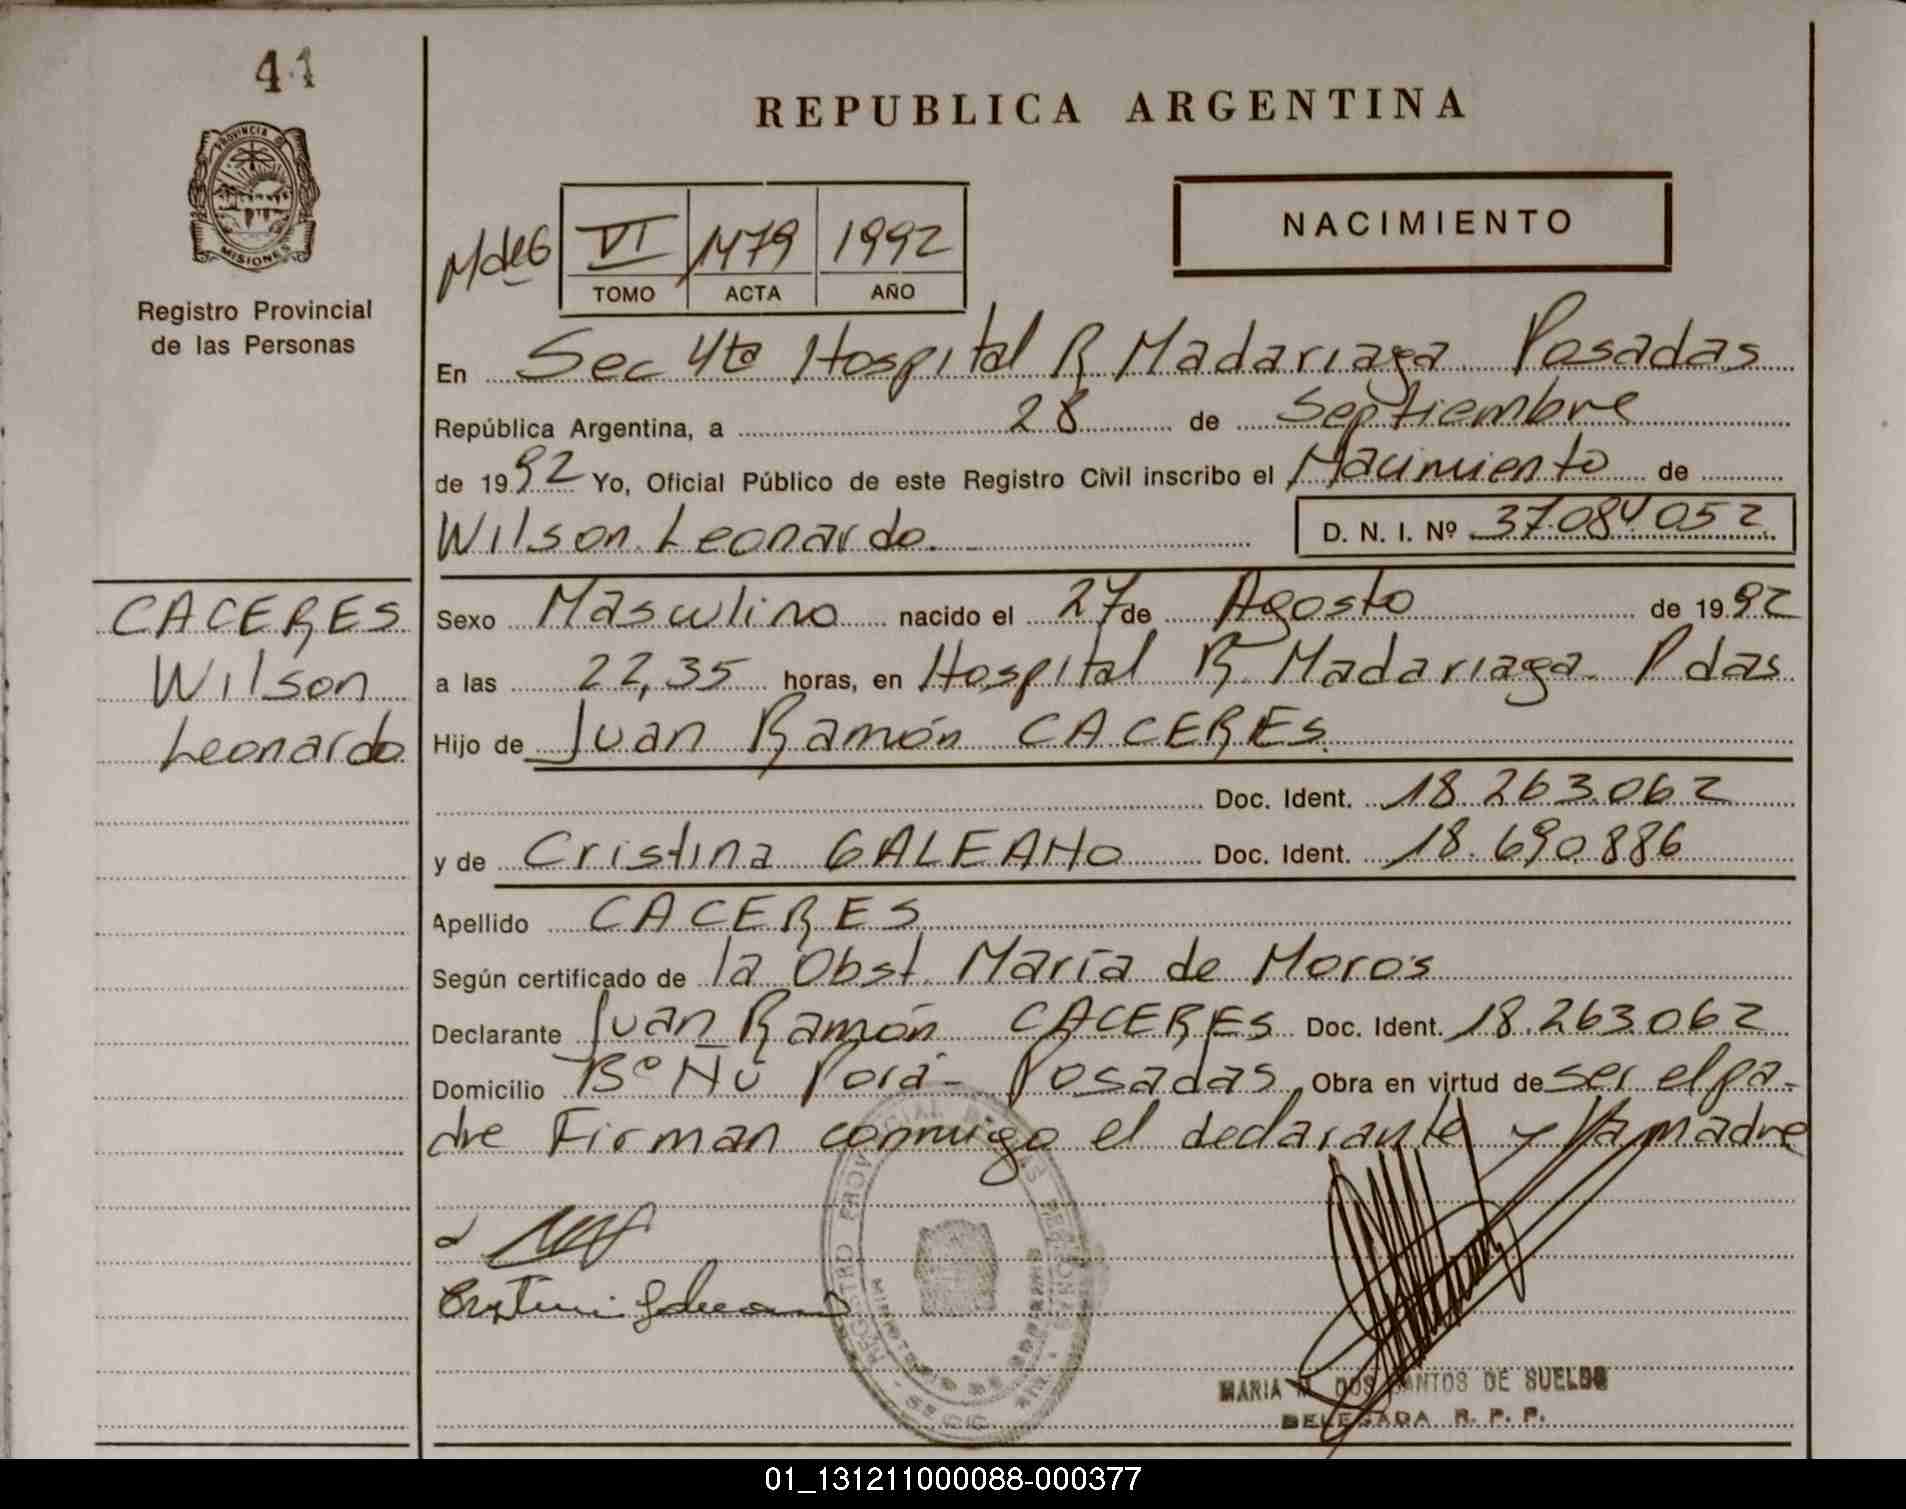 41
PROVINCIA DE
MISIONES
Registro Provincial
de las Personas
REPUBLICA ARGENTINA
NACIMIENTO
MdeG VI 1479 1992
TOMO ACTA AÑO
En Sec 4ta Hospital R Madariaga Posadas
República Argentina, a 28 de Septiembre
de 1992 Yo, Oficial Público de este Registro Civil inscribo el Nacimiento de
Wilson Leonardo D. N. I. Nº 37.084.052
CACERES
Wilson
Leonardo
Sexo Masculino nacido el 27 de Agosto de 1992
a las 22,35 horas, en Hospital R. Madariaga Pdas
Hijo de Juan Ramón CACERES
Doc. Ident. 18.263.062
y de Cristina GALEANO Doc. Ident. 18.690.886
Apellido CACERES
Según certificado de la Obst. María de Moros
Declarante Juan Ramón CACERES Doc. Ident. 18.263.062
Domicilio Bº Ñu Porá - Posadas Obra en virtud de ser el pa-
dre Firman conmigo el declarante y la madre
REGISTRO PROVINCIAL DE LAS PERSONAS
MINISTERIO DE GOBIERNO
MARIA M. DOS SANTOS DE SUELDO
DELEGADA R. P. P.
01_131211000088-000377